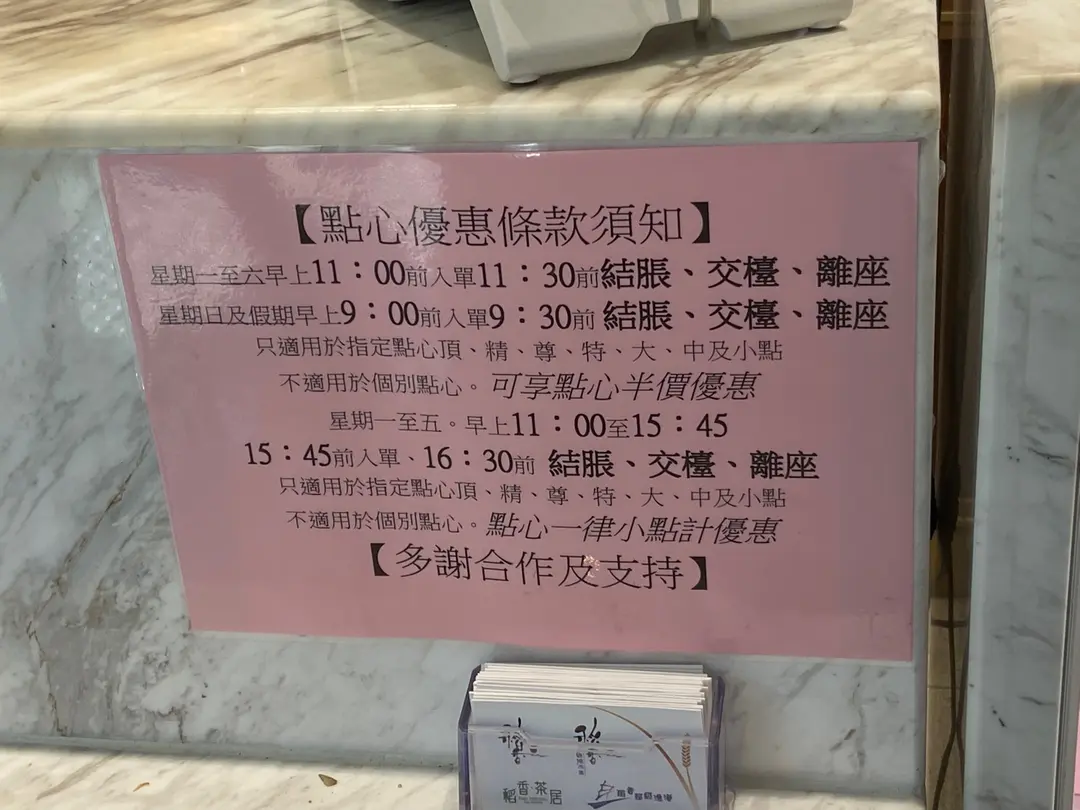 【點心優惠條款須知】
星期一至六早上11：00前入單11：30前結賬、交檯、離座
星期日及假期早上9：00前入單9：30前 結賬、交檯、離座
只適用於指定點心頂、精、尊、特、大、中及小點
不適用於個別點心。可享點心半價優惠
星期一至五。早上11：00至15：45
15：45前入單、16：30前 結賬、交檯、離座
只適用於指定點心頂、精、尊、特、大、中及小點
不適用於個別點心。點心一律小點計優惠
【多謝合作及支持】
稻香·茶居